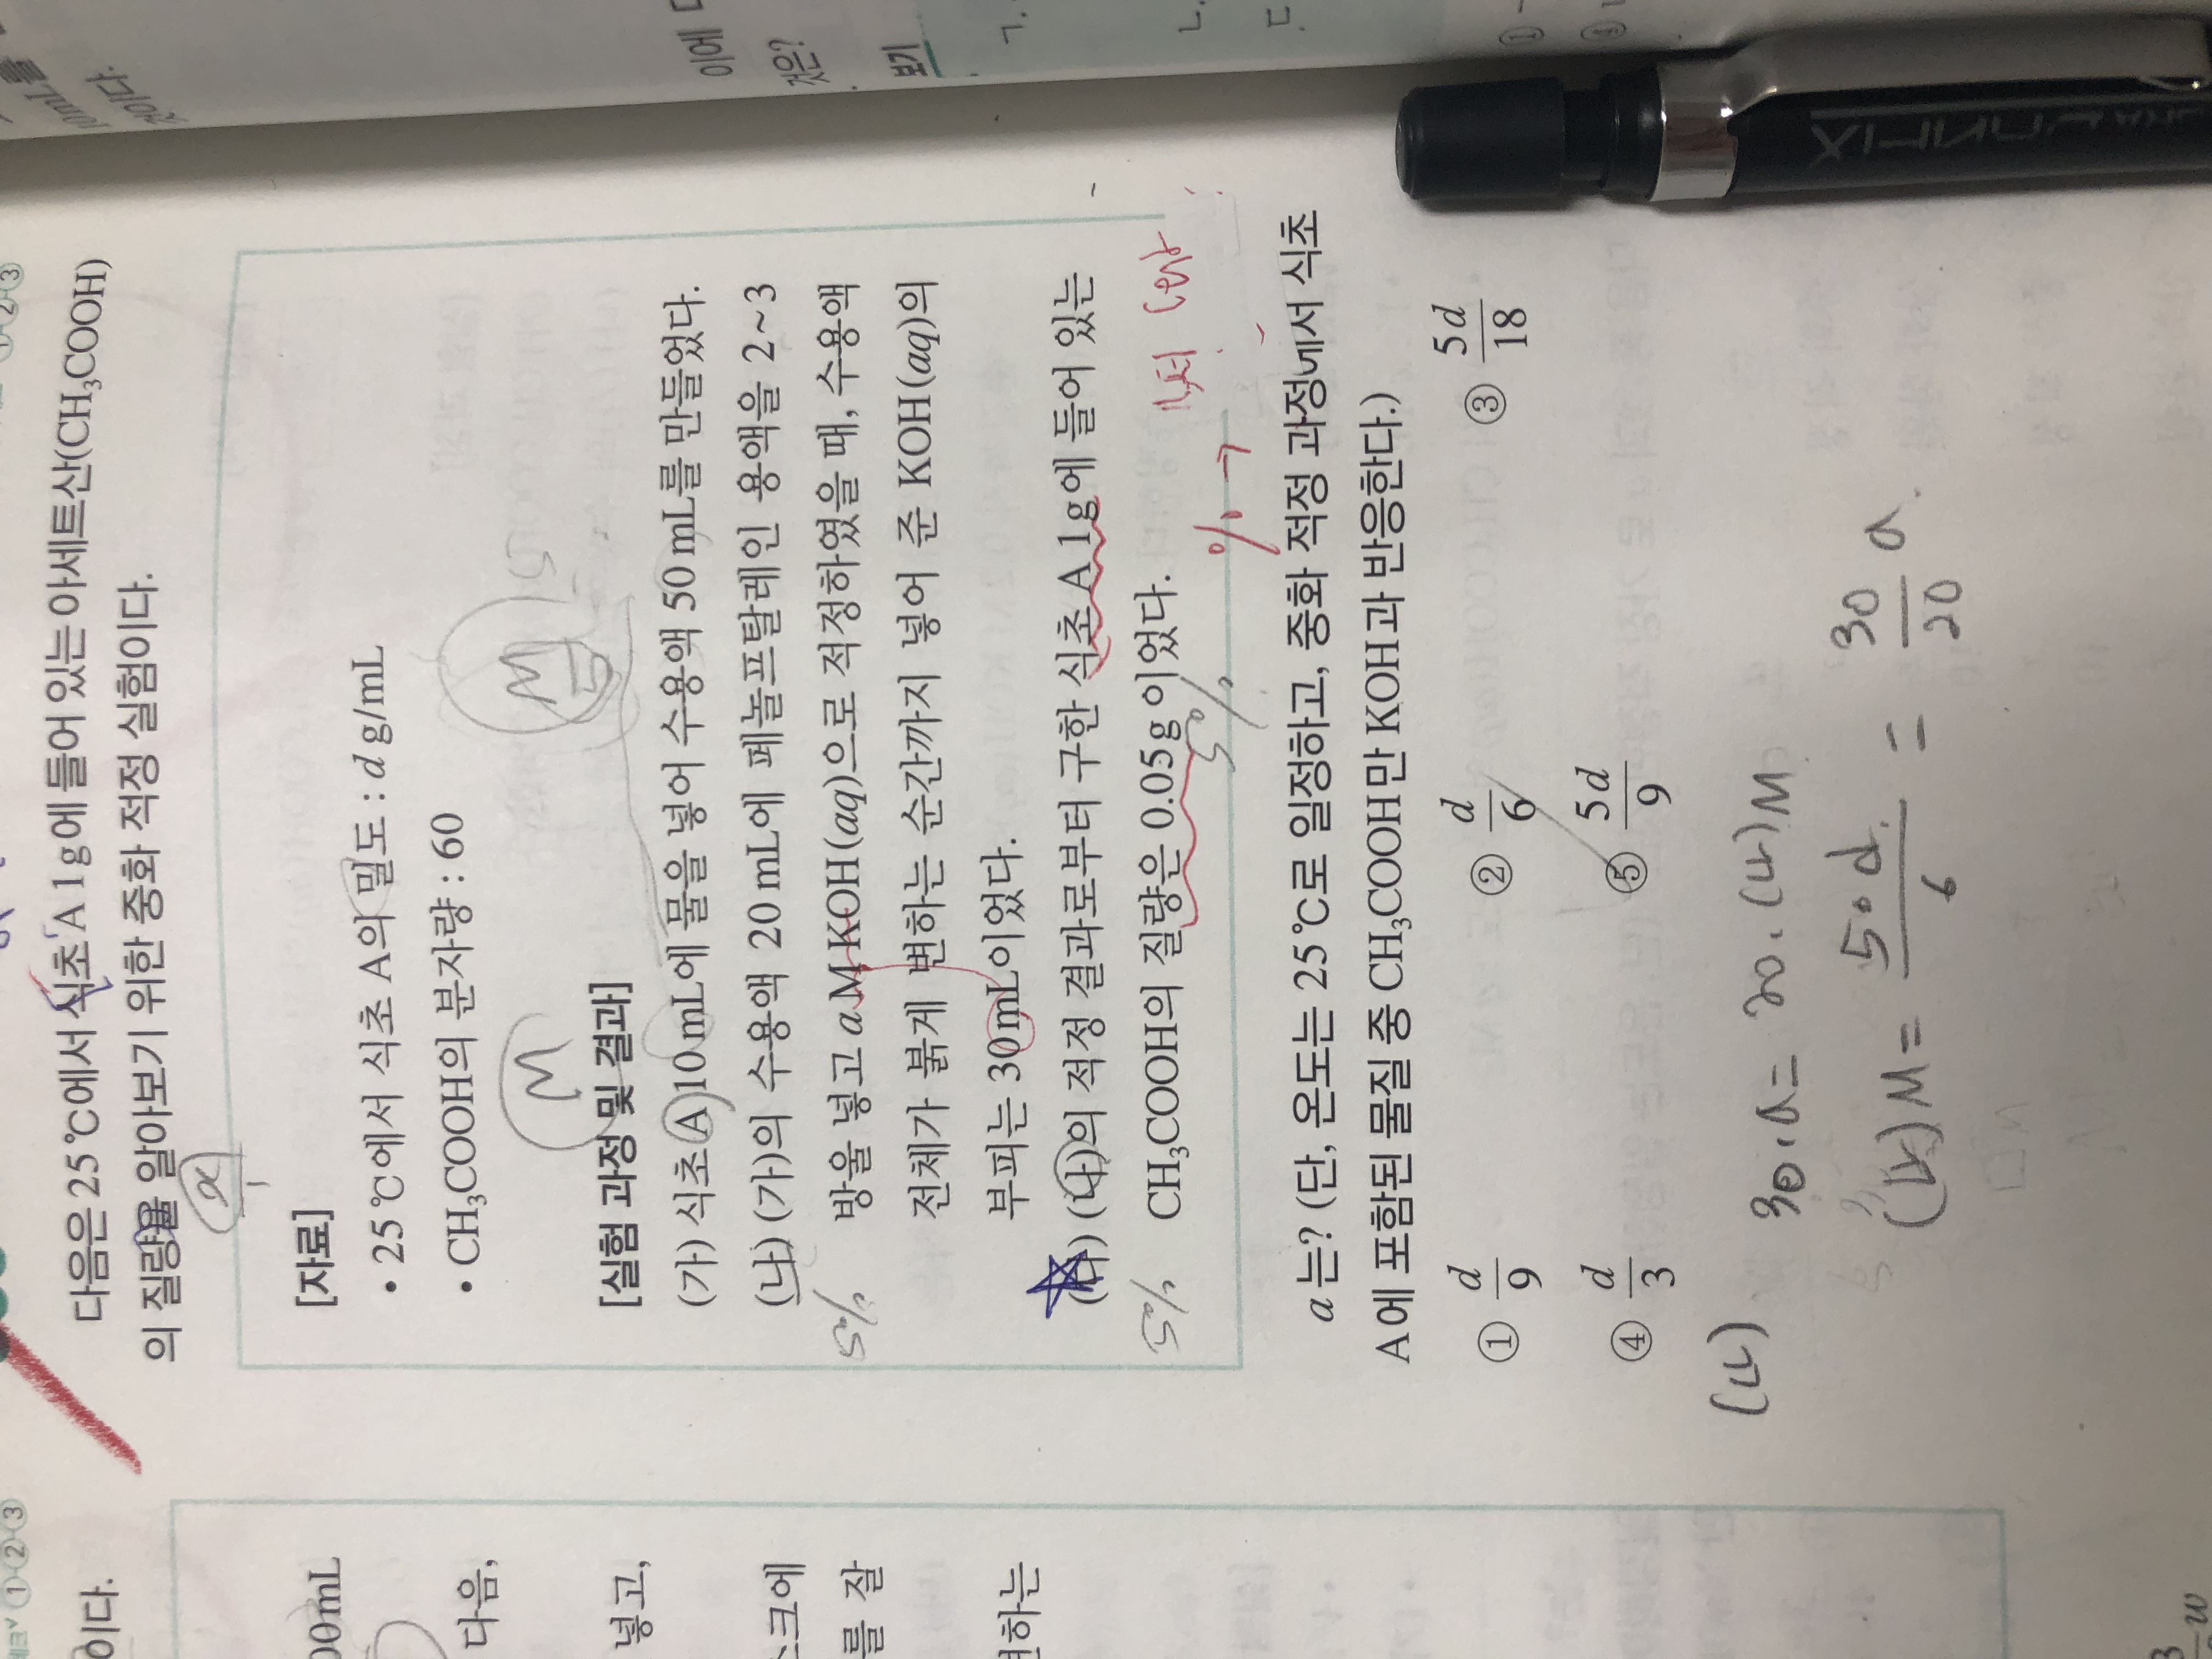 10mL를
것이다.
이에 다
것은?
보기
ㄱ.
ㄴ.
ㄷ.
다음은 25℃에서 식초 A 1g에 들어 있는 아세트산(CH₃COOH)
의 질량을 알아보기 위한 중화 적정 실험이다.
x
1
[자료]
• 25℃에서 식초 A의 밀도 : d g/mL
• CH₃COOH의 분자량 : 60
M
M
5
[실험 과정 및 결과]
(가) 식초 A 10mL에 물을 넣어 수용액 50mL를 만들었다.
(나) (가)의 수용액 20mL에 페놀프탈레인 용액을 2~3
방울 넣고 a M KOH(aq)으로 적정하였을 때, 수용액
전체가 붉게 변하는 순간까지 넣어 준 KOH(aq)의
부피는 30mL이었다.
5%
(다) (나)의 적정 결과로부터 구한 식초 A 1g에 들어 있는
CH₃COOH의 질량은 0.05g이었다.
5%
5%
% →
a는? (단, 온도는 25℃로 일정하고, 중화 적정 과정에서 식초
A에 포함된 물질 중 CH₃COOH만 KOH과 반응한다.)
① d/9 ② d/6 ③ 5d/18
④ d/3 ⑤ 5d/9
(나) 30·a = 20·(나)M
(가)M = 50d/6 = 30/20 a
①②③
이다.
00mL
다음,
넣고,
스크에
를 잘
변하는
w